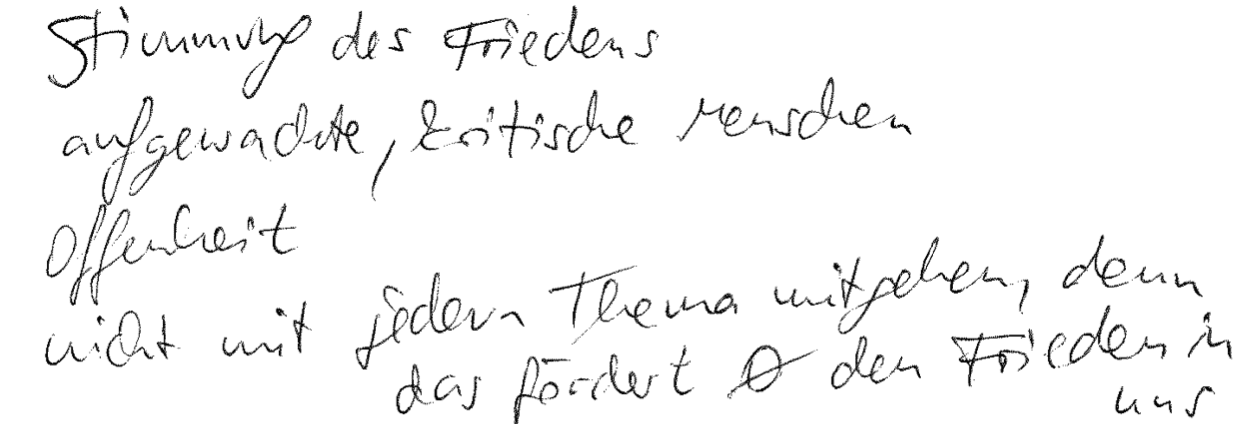 Stimmung des Friedens
aufgewachte, kritische Menschen
Offenheit
nicht mit jedem Thema mitgehen, denn
das fördert Ø den Frieden in
uns